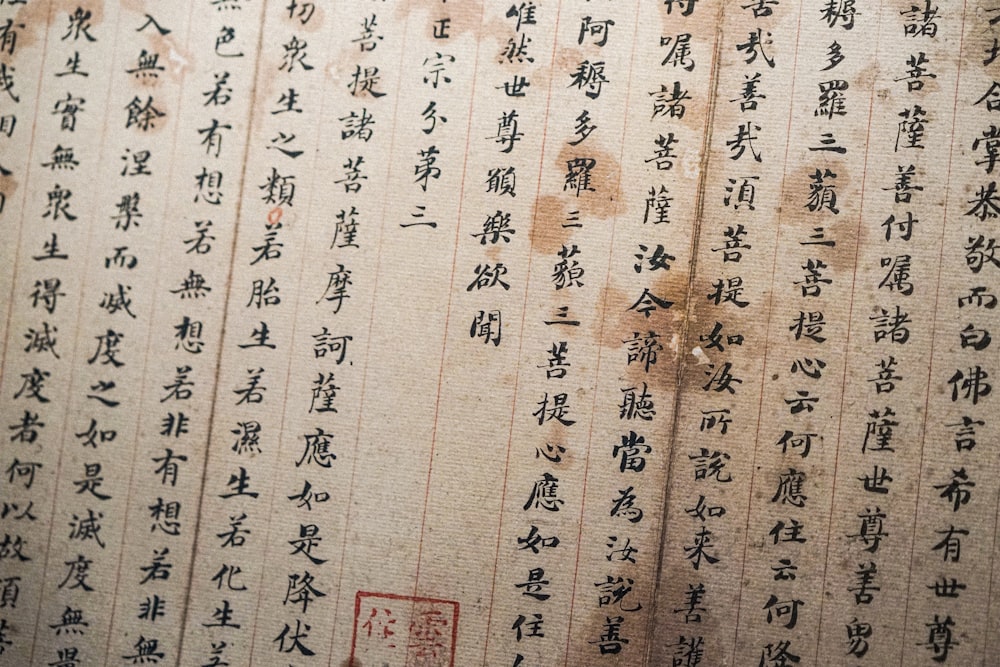 地合掌恭敬而白佛言希有世尊
諸菩薩善付囑諸菩薩世尊善男
耨多羅三藐三菩提心云何應住云何降
善哉善哉須菩提如汝所說如来善護
囑諸菩薩汝今諦聽當為汝說善
阿耨多羅三藐三菩提心應如是住
唯然世尊願樂欲聞
正宗分第三
菩提諸菩薩摩訶薩應如是降伏
切衆生之類若胎生若濕生若化生若
無色若有想若無想若非有想若非無
入無餘涅槃而滅度之如是滅度無量
衆生實無衆生得滅度者何以故須菩
有我相人
雲
住